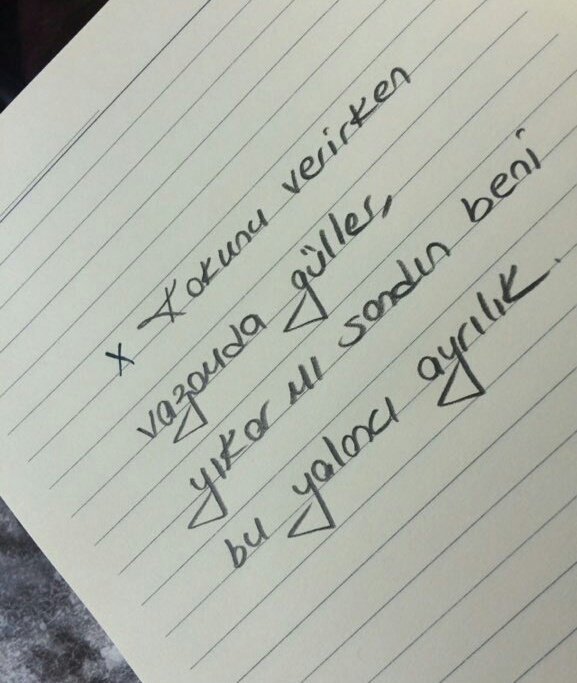 x Kokunu verirken
vazomda güller,
yıkar mı sandın beni
bu yalancı ayrılık.